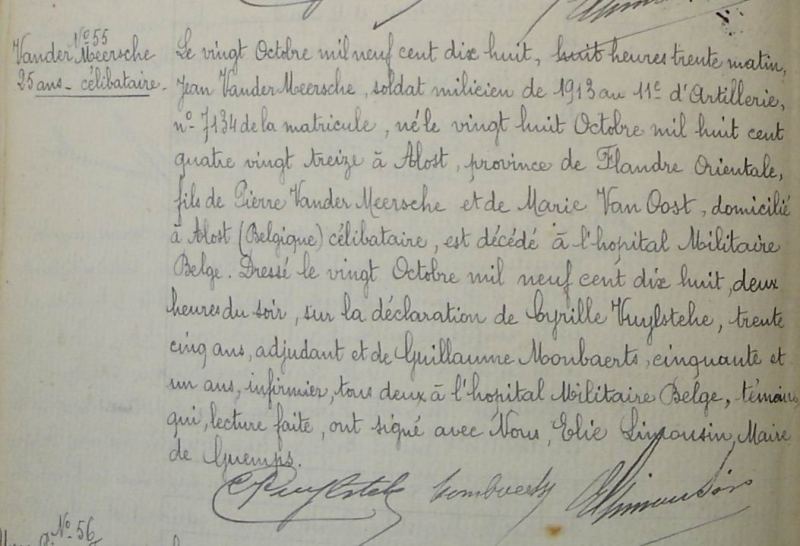 N° 55
Vander Meersche
25 ans - célibataire.
Le vingt Octobre mil neuf cent dix huit, huit heures trente matin,
Jean Vander Meersche, soldat milicien de 1913 au 11e d'Artillerie,
n° 7134 de la matricule, né le vingt huit Octobre mil huit cent
quatre vingt treize à Alost, province de Flandre Orientale,
fils de Pierre Vander Meersche et de Marie Van Oost, domicilié
à Alost (Belgique) célibataire, est décédé à l'hopital Militaire
Belge. Dressé le vingt Octobre mil neuf cent dix huit, deux
heures du soir, sur la déclaration de Cyrille Vuylstehe, trente
cinq ans, adjudant et de Guillaume Moonbaerts, cinquante et
un ans, infirmier, tous deux à l'hopital Militaire Belge, témoins
qui, lecture faite, ont signé avec Nous, Elie Limousin, Maire
de Guemps.
N° 56